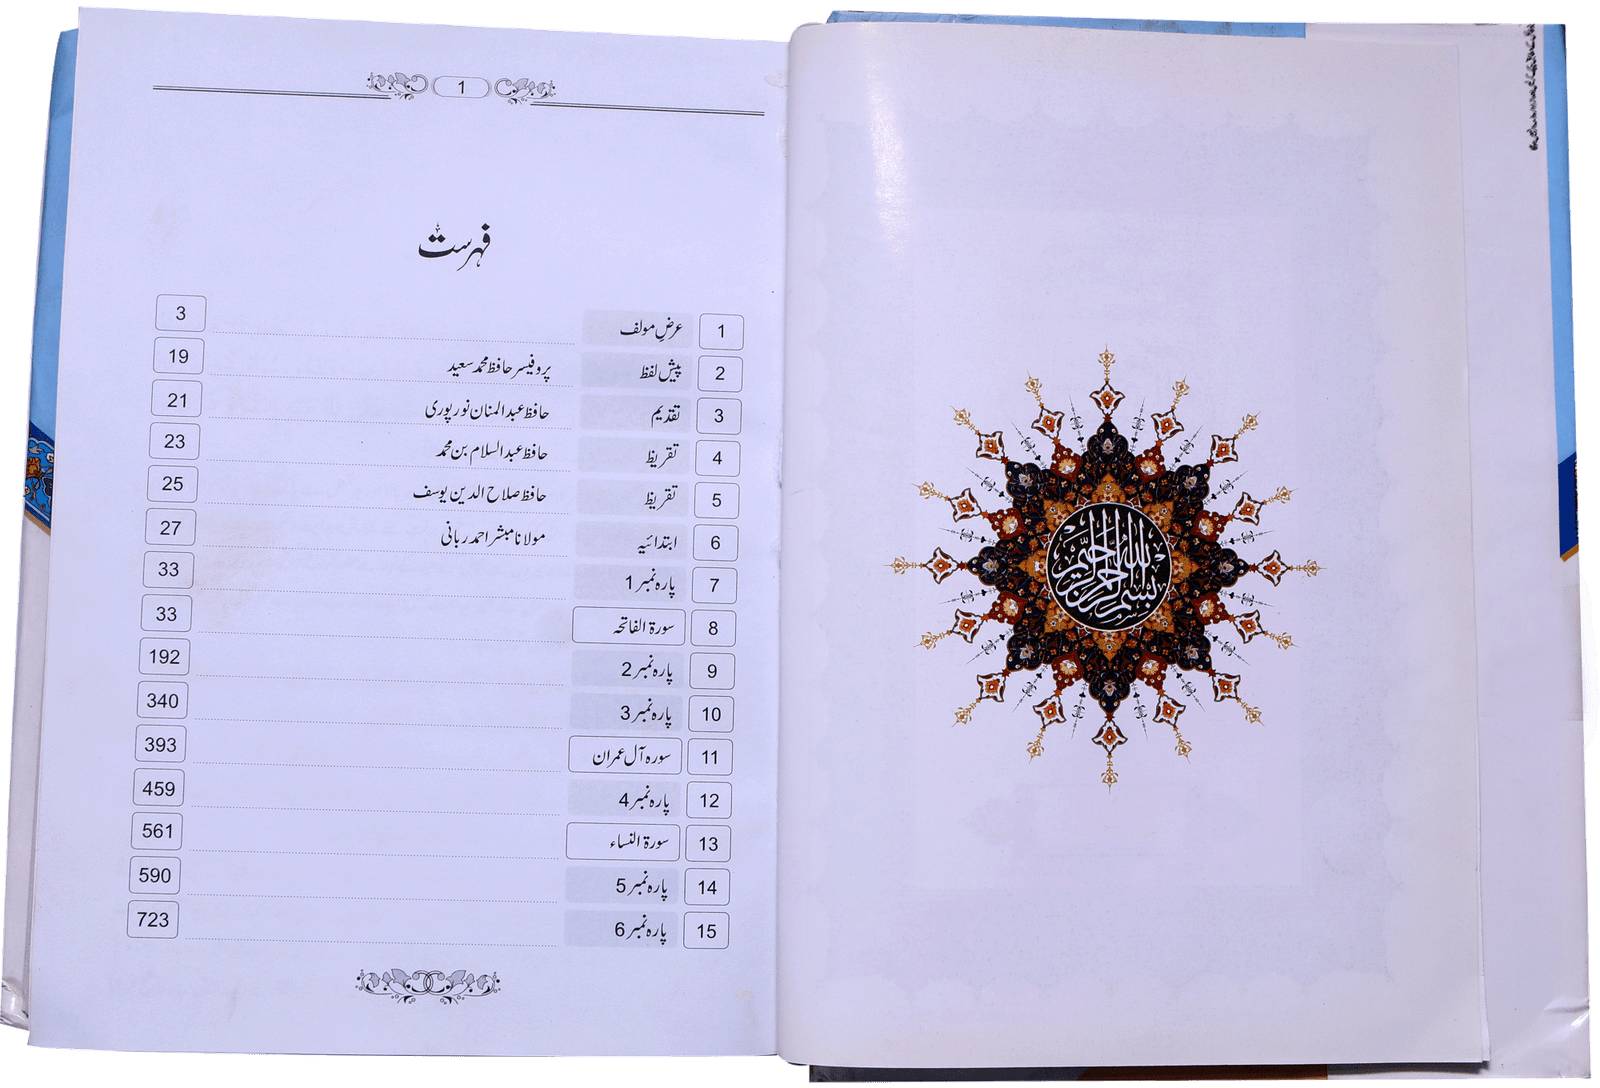 بسم الله الرحمن الرحيم
1
فہرست
1 عرضِ مولف 3
2 پیش لفظ پروفیسر حافظ محمد سعید 19
3 تقدیم حافظ عبدالمنان نورپوری 21
4 تقریظ حافظ عبدالسلام بن محمد 23
5 تقریظ حافظ صلاح الدین یوسف 25
6 ابتدائیہ مولانا مبشر احمد ربانی 27
7 پارہ نمبر 1 33
8 سورۃ الفاتحہ 33
9 پارہ نمبر 2 192
10 پارہ نمبر 3 340
11 سورہ آل عمران 393
12 پارہ نمبر 4 459
13 سورۃ النساء 561
14 پارہ نمبر 5 590
15 پارہ نمبر 6 723